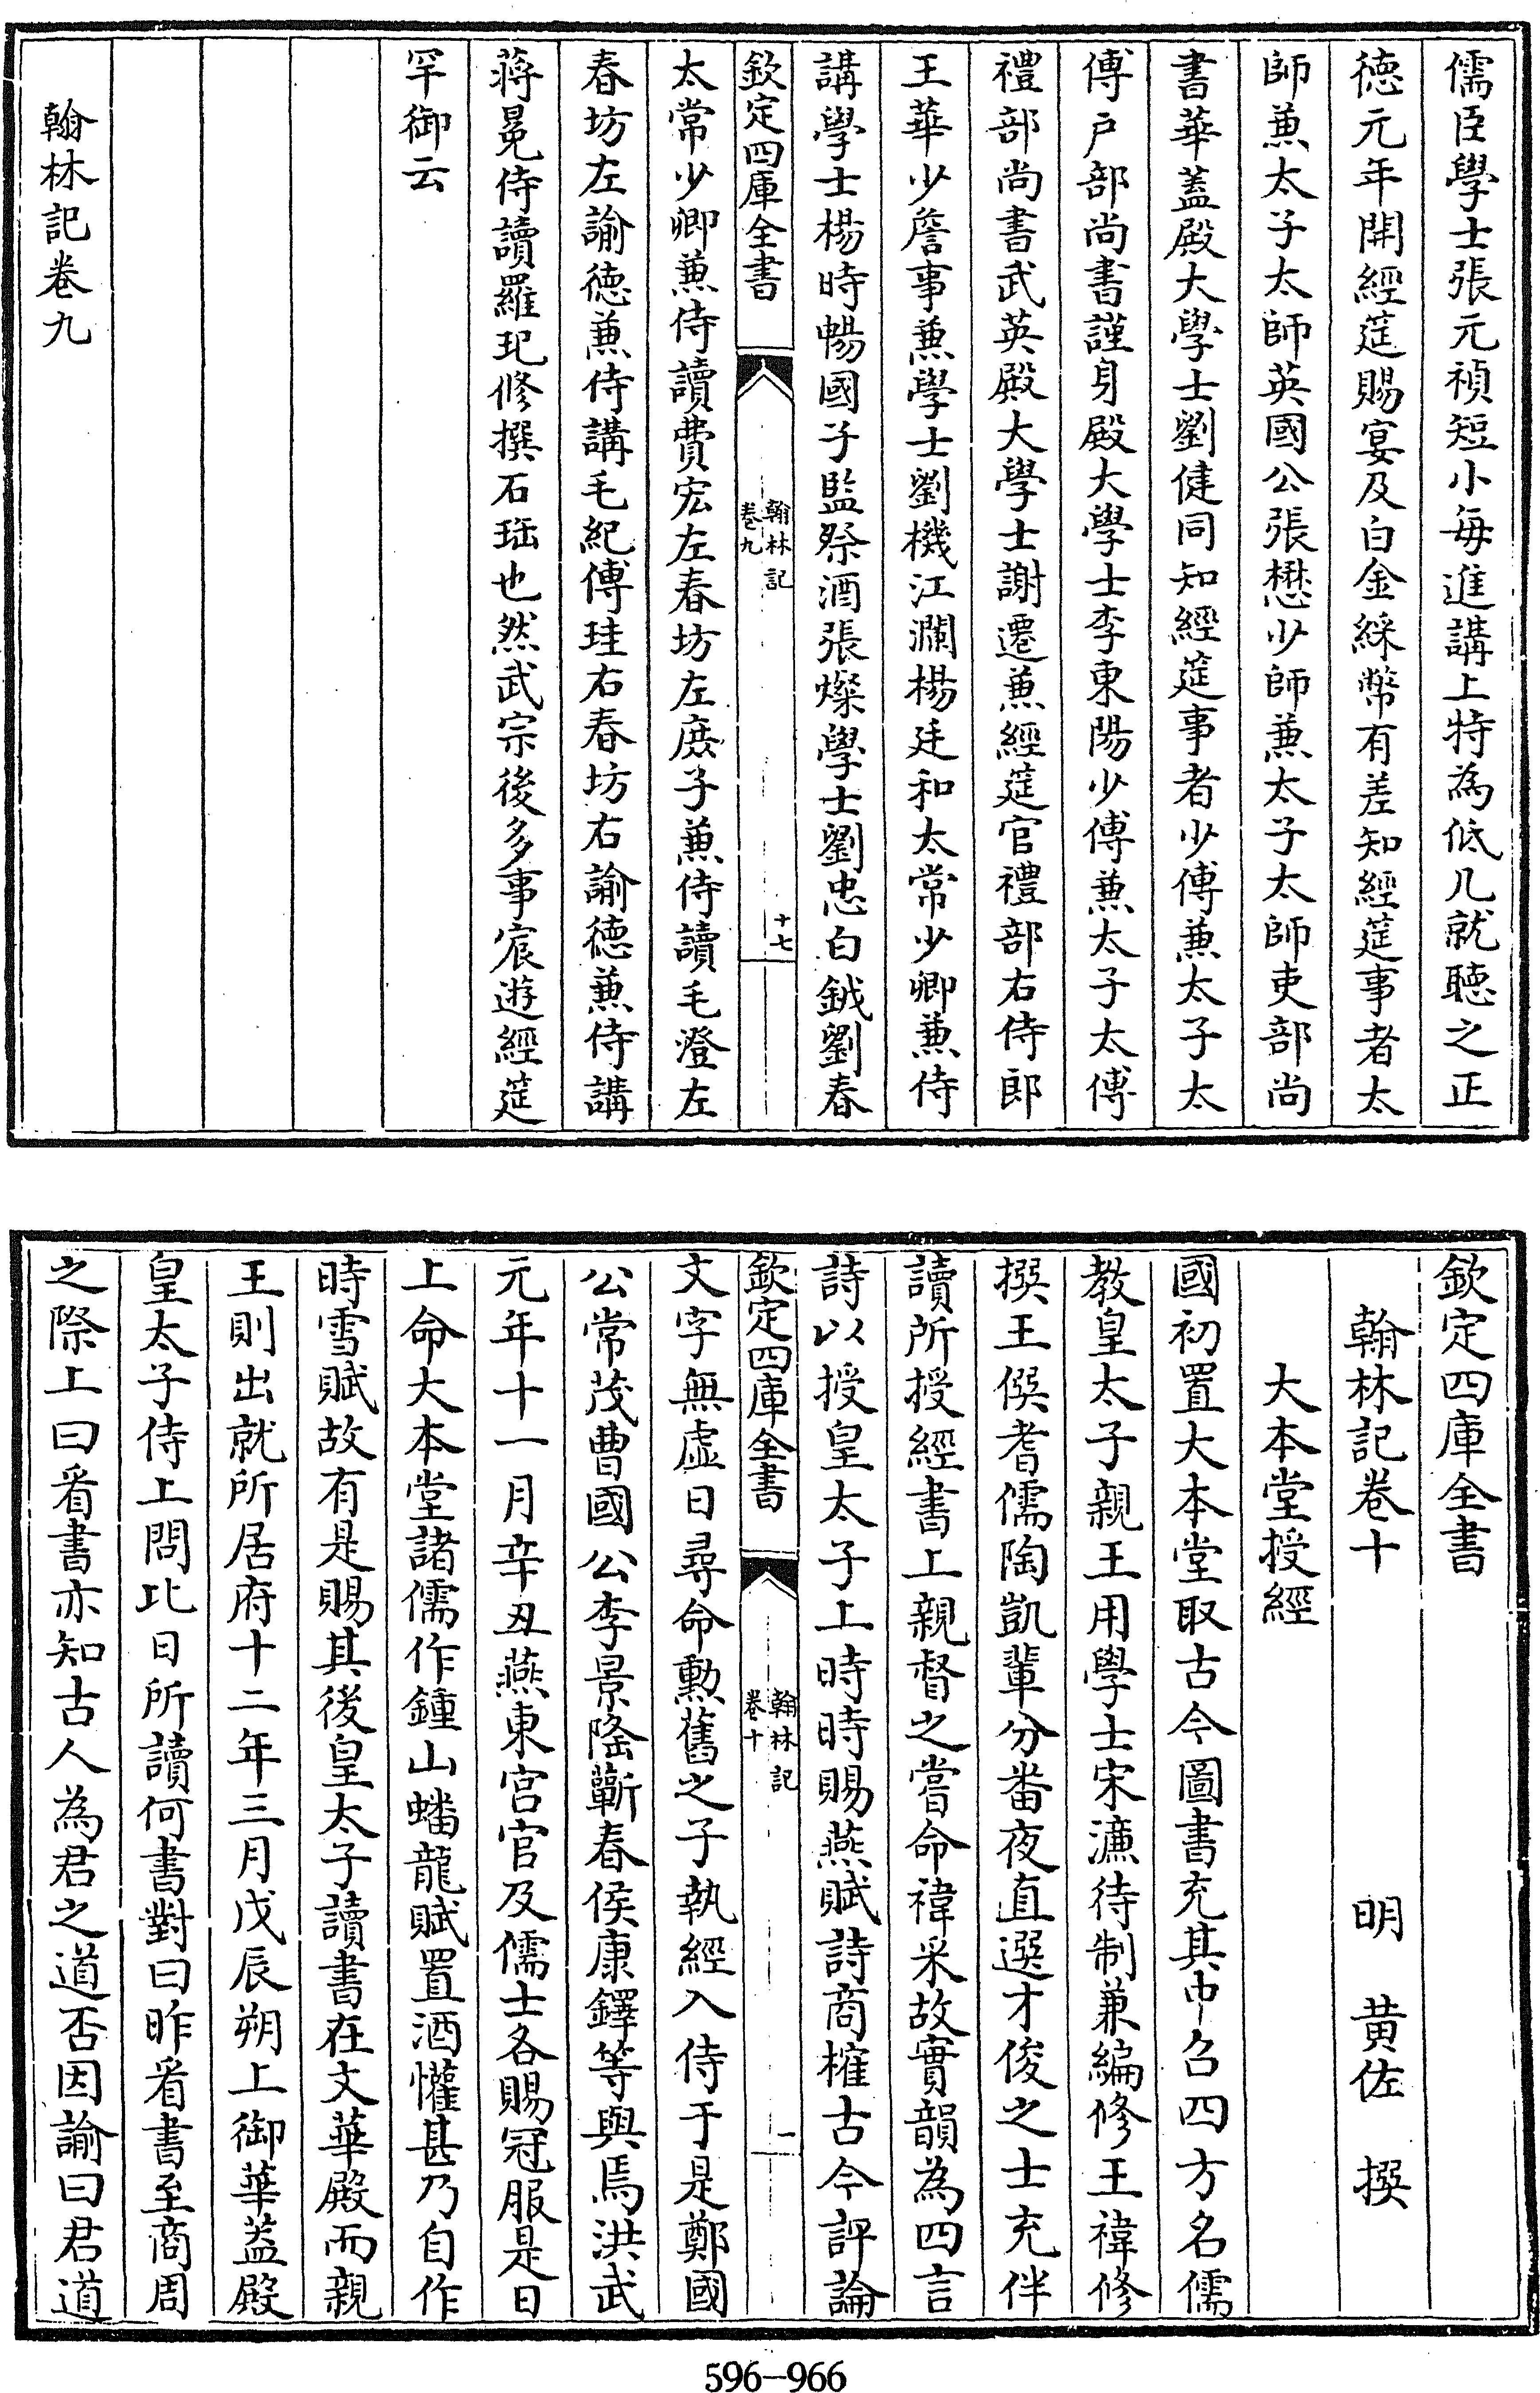 儒臣學士張元禎短小每進講上特為低几就聽之正
德元年開經筵賜宴及白金綵幣有差知經筵事者太
師兼太子太師英國公張懋少師兼太子太師吏部尚
書華蓋殿大學士劉健同知經筵事者少傅兼太子太
傅户部尚書謹身殿大學士李東陽少傅兼太子太傅
禮部尚書武英殿大學士謝遷兼經筵官禮部右侍郎
王華少詹事兼學士劉機江瀾楊廷和太常少卿兼侍
講學士楊時暢國子監祭酒張燦學士劉忠白鉞劉春
欽定四庫全書
翰林記
卷九
十七
太常少卿兼侍讀費宏左春坊左庶子兼侍讀毛澄左
春坊左諭德兼侍講毛紀傅珪右春坊右諭德兼侍講
蔣冕侍讀羅玘修撰石珤也然武宗後多事宸遊經筵
罕御云
翰林記卷九
欽定四庫全書
翰林記卷十
明 黄佐 撰
大本堂授經
國初置大本堂取古今圖書充其中召四方名儒
教皇太子親王用學士宋濂待制兼編修王禕修
撰王僎耆儒陶凱輩分畨夜直選才俊之士充伴
讀所授經書上親督之嘗命禕采故實韻為四言
詩以授皇太子上時時賜燕賦詩商榷古今評論
欽定四庫全書
翰林記
卷十
一
文字無虛日尋命勲舊之子執經入侍于是鄭國
公常茂曹國公李景隆蘄春侯康鐸等與焉洪武
元年十一月辛丑燕東宮官及儒士各賜冠服是日
上命大本堂諸儒作鍾山蟠龍賦置酒懽甚乃自作
時雪賦故有是賜其後皇太子讀書在文華殿而親
王則出就所居府十二年三月戊辰朔上御華蓋殿
皇太子侍上問比日所讀何書對曰昨看書至商周
之際上曰看書亦知古人為君之道否因諭曰君道
596-966